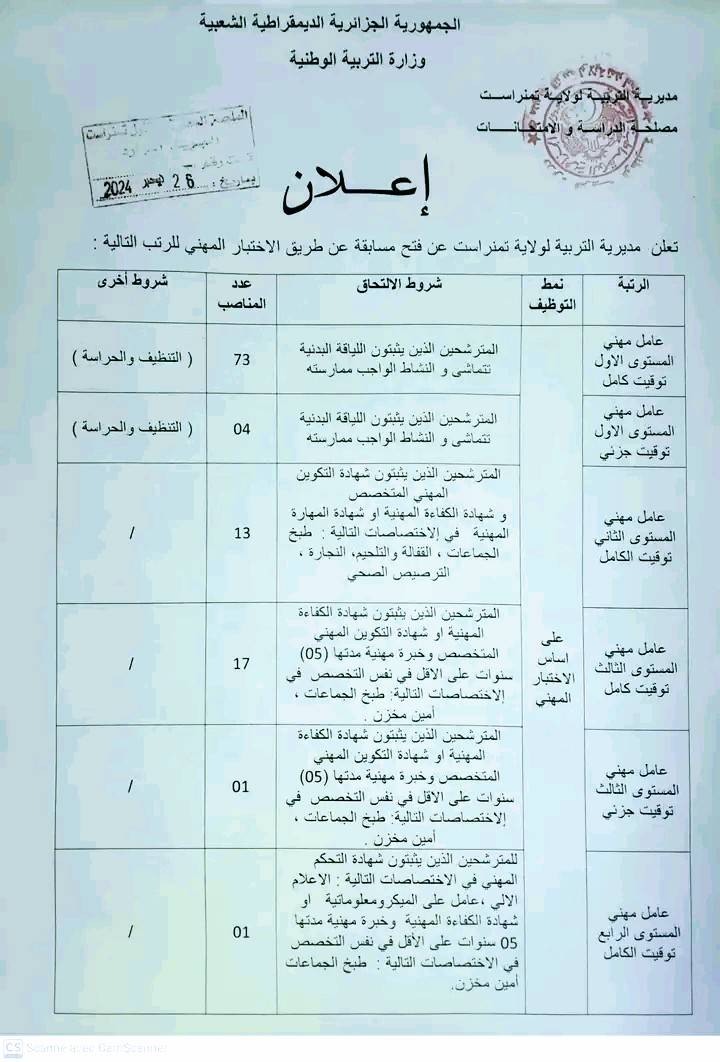 الجمهورية الجزائرية الديمقراطية الشعبية
وزارة التربية الوطنية
مديرية التربية لولاية تمنراست
مصلحة الدراسة و الامتحانات
26 نوفمبر 2024
إعلان
تعلن مديرية التربية لولاية تمنراست عن فتح مسابقة عن طريق الاختبار المهني للرتب التالية :
الرتبة
نمط
التوظيف
شروط الالتحاق
عدد
المناصب
شروط أخرى
عامل مهني
المستوى الاول
توقيت كامل
المترشحين الذين يثبتون اللياقة البدنية
تتماشى و النشاط الواجب ممارسته
73
( التنظيف والحراسة )
عامل مهني
المستوى الاول
توقيت جزئي
المترشحين الذين يثبتون اللياقة البدنية
تتماشى و النشاط الواجب ممارسته
04
( التنظيف والحراسة )
عامل مهني
المستوى الثاني
توقيت الكامل
المترشحين الذين يثبتون شهادة التكوين
المهني المتخصص
و شهادة الكفاءة المهنية او شهادة المهارة
المهنية في الاختصاصات التالية : طبخ
الجماعات ، القفالة والتلحيم، النجارة ،
الترصيص الصحي
13
/
على
اساس
الاختبار
المهني
عامل مهني
المستوى الثالث
توقيت كامل
المترشحين الذين يثبتون شهادة الكفاءة
المهنية او شهادة التكوين المهني
المتخصص وخبرة مهنية مدتها (05)
سنوات على الاقل في نفس التخصص في
الاختصاصات التالية: طبخ الجماعات ،
أمين مخزن .
17
/
عامل مهني
المستوى الثالث
توقيت جزئي
المترشحين الذين يثبتون شهادة الكفاءة
المهنية او شهادة التكوين المهني
المتخصص وخبرة مهنية مدتها (05)
سنوات على الاقل في نفس التخصص في
الاختصاصات التالية: طبخ الجماعات ،
أمين مخزن .
01
/
عامل مهني
المستوى الرابع
توقيت الكامل
للمترشحين الذين يثبتون شهادة التحكم
المهني في الاختصاصات التالية : الاعلام
الالي ،عامل على الميكرومعلوماتية او
شهادة الكفاءة المهنية وخبرة مهنية مدتها
05 سنوات على الأقل في نفس التخصص
في الاختصاصات التالية : طبخ الجماعات
أمين مخزن.
01
/
CS Scanné avec CamScanner